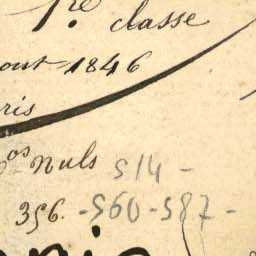 1re classe
out 1846
ris
os nuls 514 -
356. - 560 - 587 -